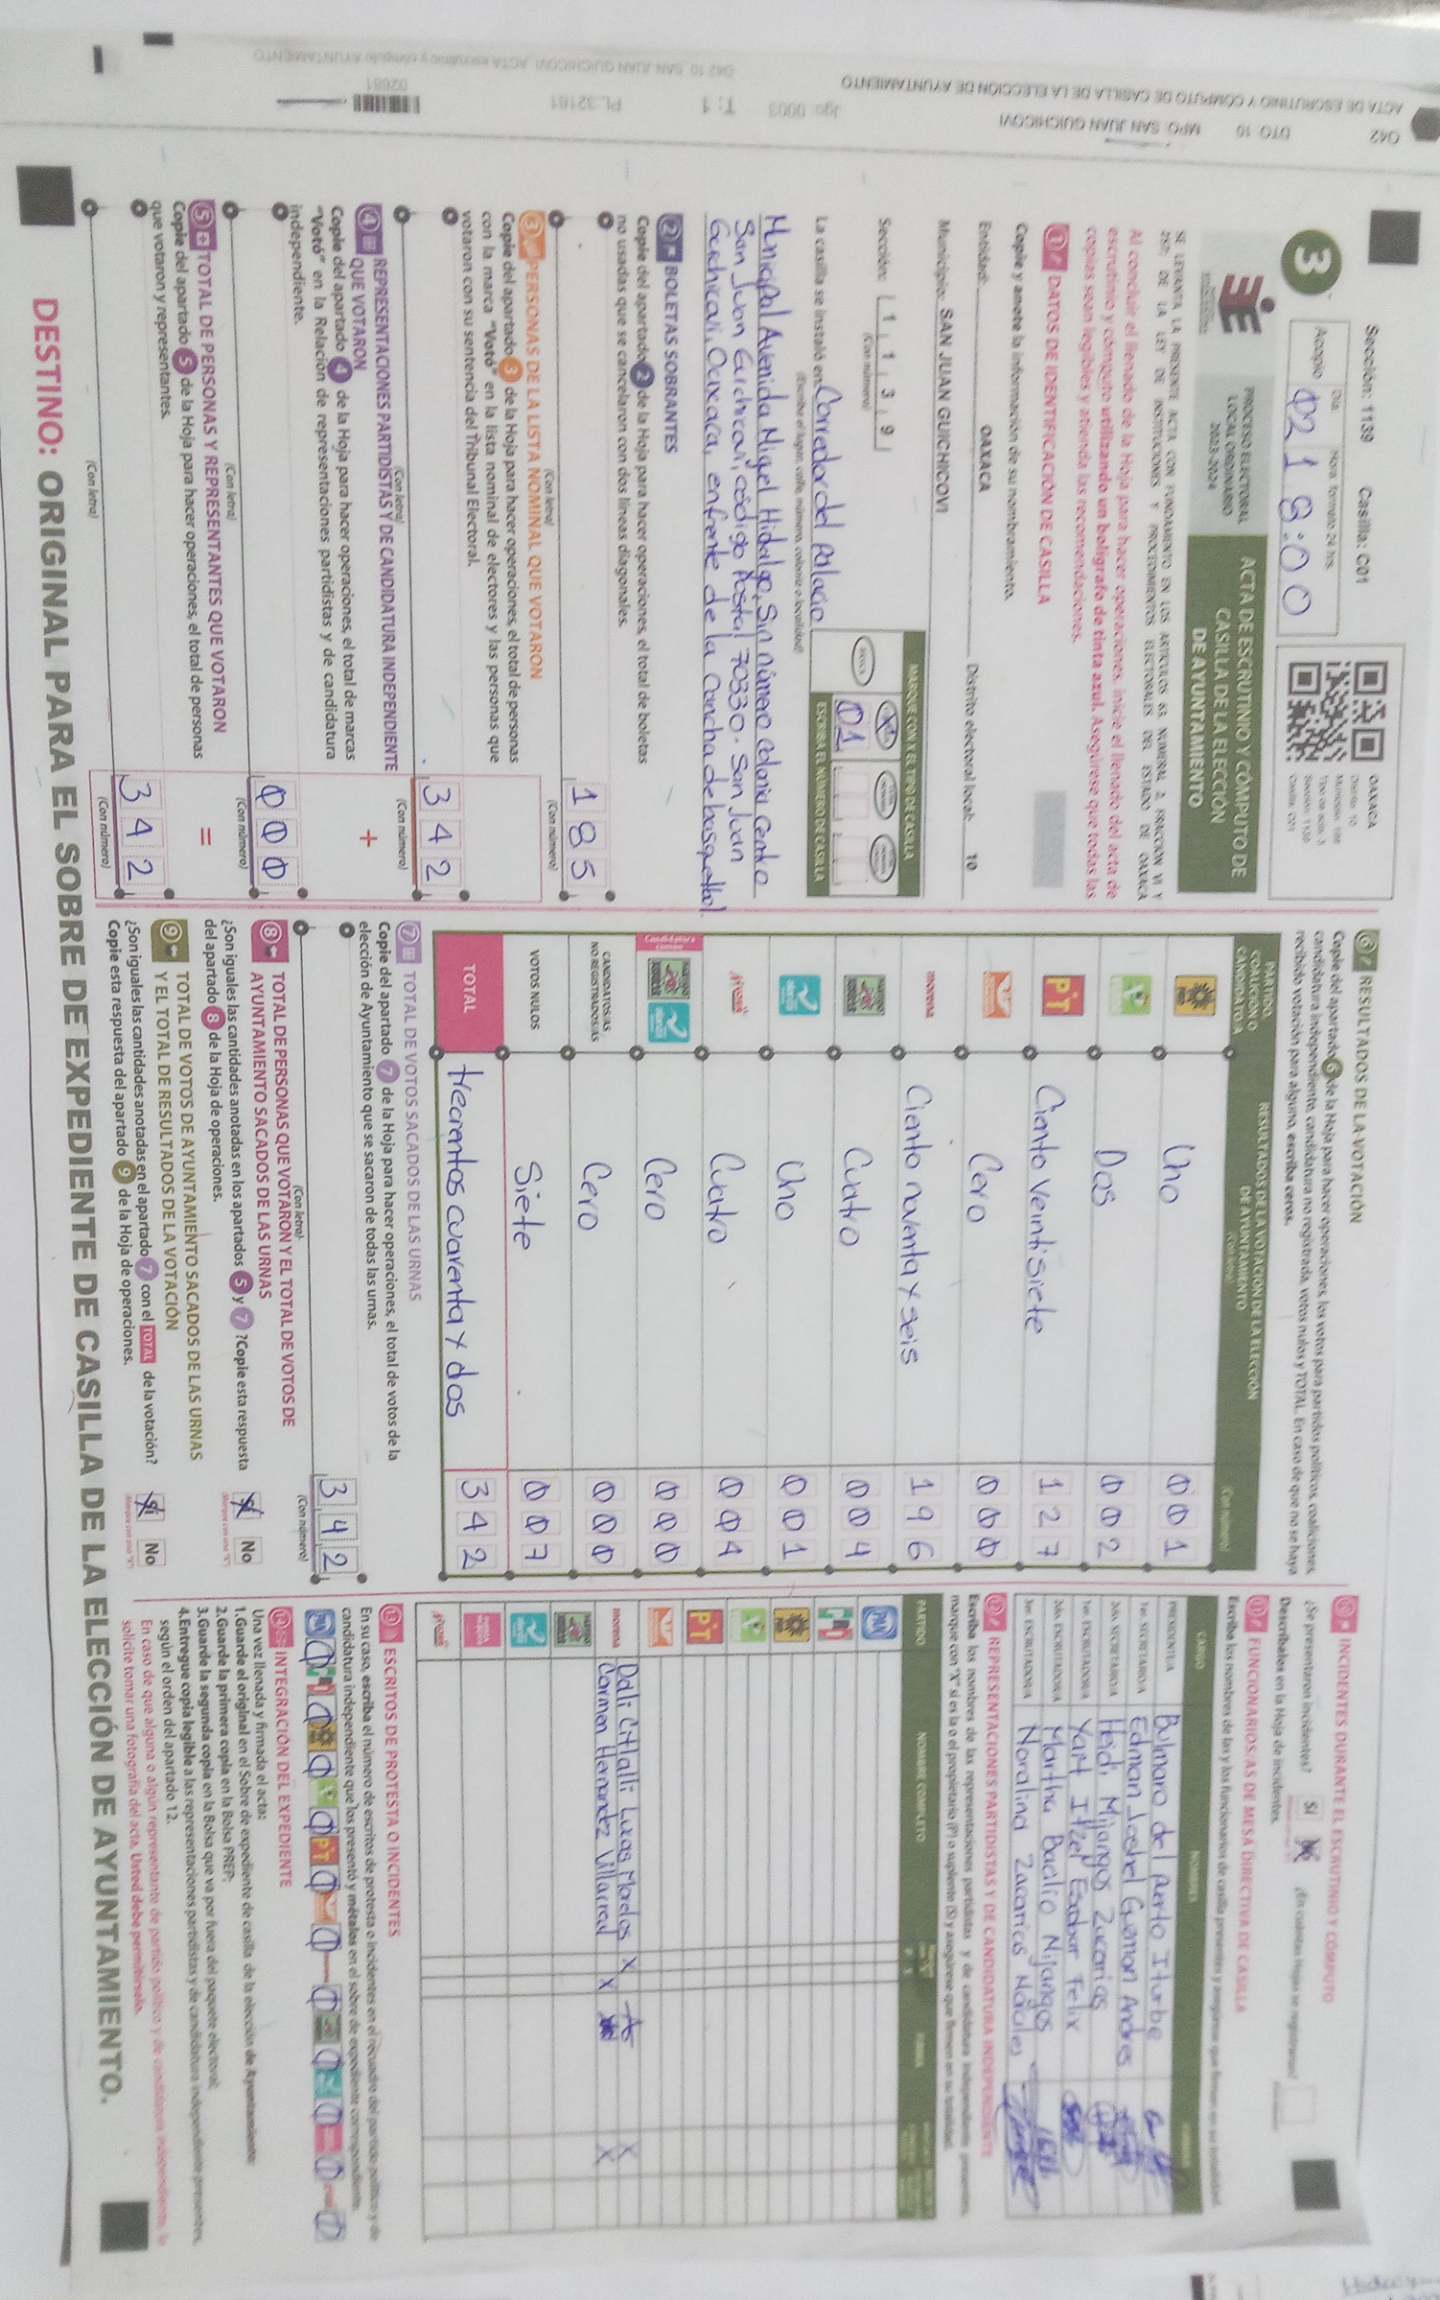 Sección: 1139 Casilla: C01
Día: Hora formato 24 hrs.
Acopio 02 18:00
3
OAXACA
Distrito: 10
PROCESO ELECTORAL
LOCAL ORDINARIO
2023-2024
ACTA DE ESCRUTINIO Y CÓMPUTO DE
CASILLA DE LA ELECCIÓN
DE AYUNTAMIENTO
SE LEVANTA LA PRESENTE ACTA CON FUNDAMENTO EN LOS ARTÍCULOS 63, NUMERAL 2, FRACCIÓN VI Y
257; DE LA LEY DE INSTITUCIONES Y PROCEDIMIENTOS ELECTORALES DEL ESTADO DE OAXACA
Al concluir el llenado de la Hoja para hacer operaciones, inicie el llenado del acta de
escrutinio y cómputo utilizando un bolígrafo de tinta azul. Asegúrese que todas las
copias sean legibles y atienda las recomendaciones.
1 DATOS DE IDENTIFICACIÓN DE CASILLA
Copie y anote la información de su nombramiento.
Entidad: OAXACA Distrito electoral local: 10
Municipio: SAN JUAN GUICHICOVI
Sección: 1 1 3 9
(Con número)
MARQUE CON X EL TIPO DE CASILLA
01
ESCRIBA EL NÚMERO DE CASILLA
La casilla se instaló en: Corredor del Palacio
(Escriba el lugar, calle, número, colonia o localidad)
Municipal Avenida Miguel Hidalgo, Sin número Colonia Centro
San Juan Guichicovi, código Postal 70330. San Juan
Guichicovi, Oaxaca, enfrente de la Cancha de basquetbol.
2 BOLETAS SOBRANTES
Copie del apartado 2 de la Hoja para hacer operaciones, el total de boletas
no usadas que se cancelaron con dos líneas diagonales.
185
(Con letra) (Con número)
3 PERSONAS DE LA LISTA NOMINAL QUE VOTARON
Copie del apartado 3 de la Hoja para hacer operaciones, el total de personas
con la marca "Votó" en la lista nominal de electores y las personas que
votaron con su sentencia del Tribunal Electoral.
342
(Con letra) (Con número)
4 REPRESENTACIONES PARTIDISTAS Y DE CANDIDATURA INDEPENDIENTE
QUE VOTARON +
Copie del apartado 4 de la Hoja para hacer operaciones, el total de marcas
"Votó" en la Relación de representaciones partidistas y de candidatura
independiente.
000
(Con letra) (Con número)
5 TOTAL DE PERSONAS Y REPRESENTANTES QUE VOTARON =
Copie del apartado 5 de la Hoja para hacer operaciones, el total de personas
que votaron y representantes.
342
(Con letra) (Con número)
6 RESULTADOS DE LA VOTACIÓN
Copie del apartado 6 de la Hoja para hacer operaciones, los votos para partidos políticos, coaliciones,
candidatura independiente, candidatura no registrada, votos nulos y TOTAL. En caso de que no se haya
recibido votación para alguno, escriba ceros.
PARTIDO, COALICIÓN O CANDIDATO/A
RESULTADOS DE LA VOTACIÓN DE LA ELECCIÓN
DE AYUNTAMIENTO
(Con letra) (Con número)
PRD Uno 001
Dos 002
PT Ciento veintisiete 127
Cero 000
morena Ciento noventa y seis 196
Cuatro 004
Uno 001
Cuatro 004
Cero 000
CANDIDATOS/AS NO REGISTRADOS/AS Cero 000
VOTOS NULOS Siete 007
TOTAL trecientos cuarenta y dos 342
7 TOTAL DE VOTOS SACADOS DE LAS URNAS
Copie del apartado 7 de la Hoja para hacer operaciones, el total de votos de la
elección de Ayuntamiento que se sacaron de todas las urnas.
342
(Con letra) (Con número)
8 TOTAL DE PERSONAS QUE VOTARON Y EL TOTAL DE VOTOS DE
AYUNTAMIENTO SACADOS DE LAS URNAS
¿Son iguales las cantidades anotadas en los apartados 5 y 7 ? Copie esta respuesta
del apartado 8 de la Hoja de operaciones.
Sí No
9 TOTAL DE VOTOS DE AYUNTAMIENTO SACADOS DE LAS URNAS
Y EL TOTAL DE RESULTADOS DE LA VOTACIÓN
¿Son iguales las cantidades anotadas en el apartado 7 con el TOTAL de la votación?
Copie esta respuesta del apartado 9 de la Hoja de operaciones.
Sí No
10 INCIDENTES DURANTE EL ESCRUTINIO Y CÓMPUTO
¿Se presentaron incidentes? Sí No ¿En cuántas Hojas se registraron?
Descríbalos en la Hoja de incidentes.
11 FUNCIONARIOS/AS DE MESA DIRECTIVA DE CASILLA
Escriba los nombres de las y los funcionarios de casilla presentes y asegúrese que firmen en su totalidad.
CARGO NOMBRES
PRESIDENTE/A Bulmaro del Puerto Iturbe
1er. SECRETARIO/A Edman Joshel Guzman Andres
2do. SECRETARIO/A Heidi Mijangos Zacarias
1er. ESCRUTADOR/A Yart Itzel Escobar Felix
2do. ESCRUTADOR/A Martha Basilio Mijangos
3er. ESCRUTADOR/A Noralina Zacarias
12 REPRESENTACIONES PARTIDISTAS Y DE CANDIDATURA INDEPENDIENTE
Escriba los nombres de las representaciones partidistas y de candidatura independiente presentes,
marque con "X" si es la o el propietario (P) o suplente (S) y asegúrese que firmen en su totalidad.
PARTIDO NOMBRE COMPLETO
PAN
PRD
PT
morena Dali Citlalli Lucas Morelos X X
Carmen Hernandez Villarreal X X
13 ESCRITOS DE PROTESTA O INCIDENTES
En su caso, escriba el número de escritos de protesta o incidentes en el recuadro del partido político y de
candidatura independiente que los presentó y métalos en el sobre de expediente correspondiente.
14 INTEGRACIÓN DEL EXPEDIENTE
Una vez llenada y firmada el acta:
1.Guarde el original en el Sobre de expediente de casilla de la elección de Ayuntamiento;
2.Guarde la primera copia en la Bolsa PREP;
3.Guarde la segunda copia en la Bolsa que va por fuera del paquete electoral;
4.Entregue copia legible a las representaciones partidistas y de candidatura independiente presentes,
según el orden del apartado 12.
En caso de que alguna o algún representante de partido político y de candidatura independiente, le
solicite tomar una fotografía del acta, Usted debe permitírselo.
DESTINO: ORIGINAL PARA EL SOBRE DE EXPEDIENTE DE CASILLA DE LA ELECCIÓN DE AYUNTAMIENTO.
042 DTO. 10 MPO. SAN JUAN GUICHICOVI
ACTA DE ESCRUTINIO Y CÓMPUTO DE CASILLA DE LA ELECCIÓN DE AYUNTAMIENTO
Jgo: 0003 T: 1 PL:32161
02681
042 10 SAN JUAN GUICHICOVI ACTA escrutinio y cómputo AYUNTAMIENTO